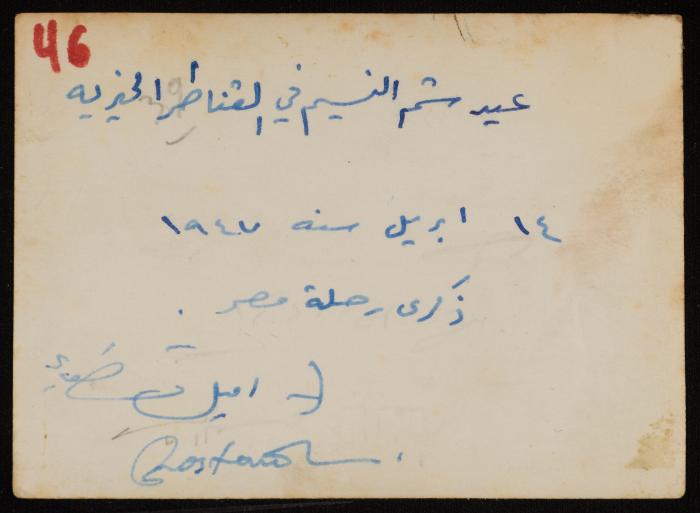 46
عيد شم النسيم في القناطر الخيريه
١٤ ابريل سنه ١٩٤٧
ذكرى رحلة مصر .
اميل